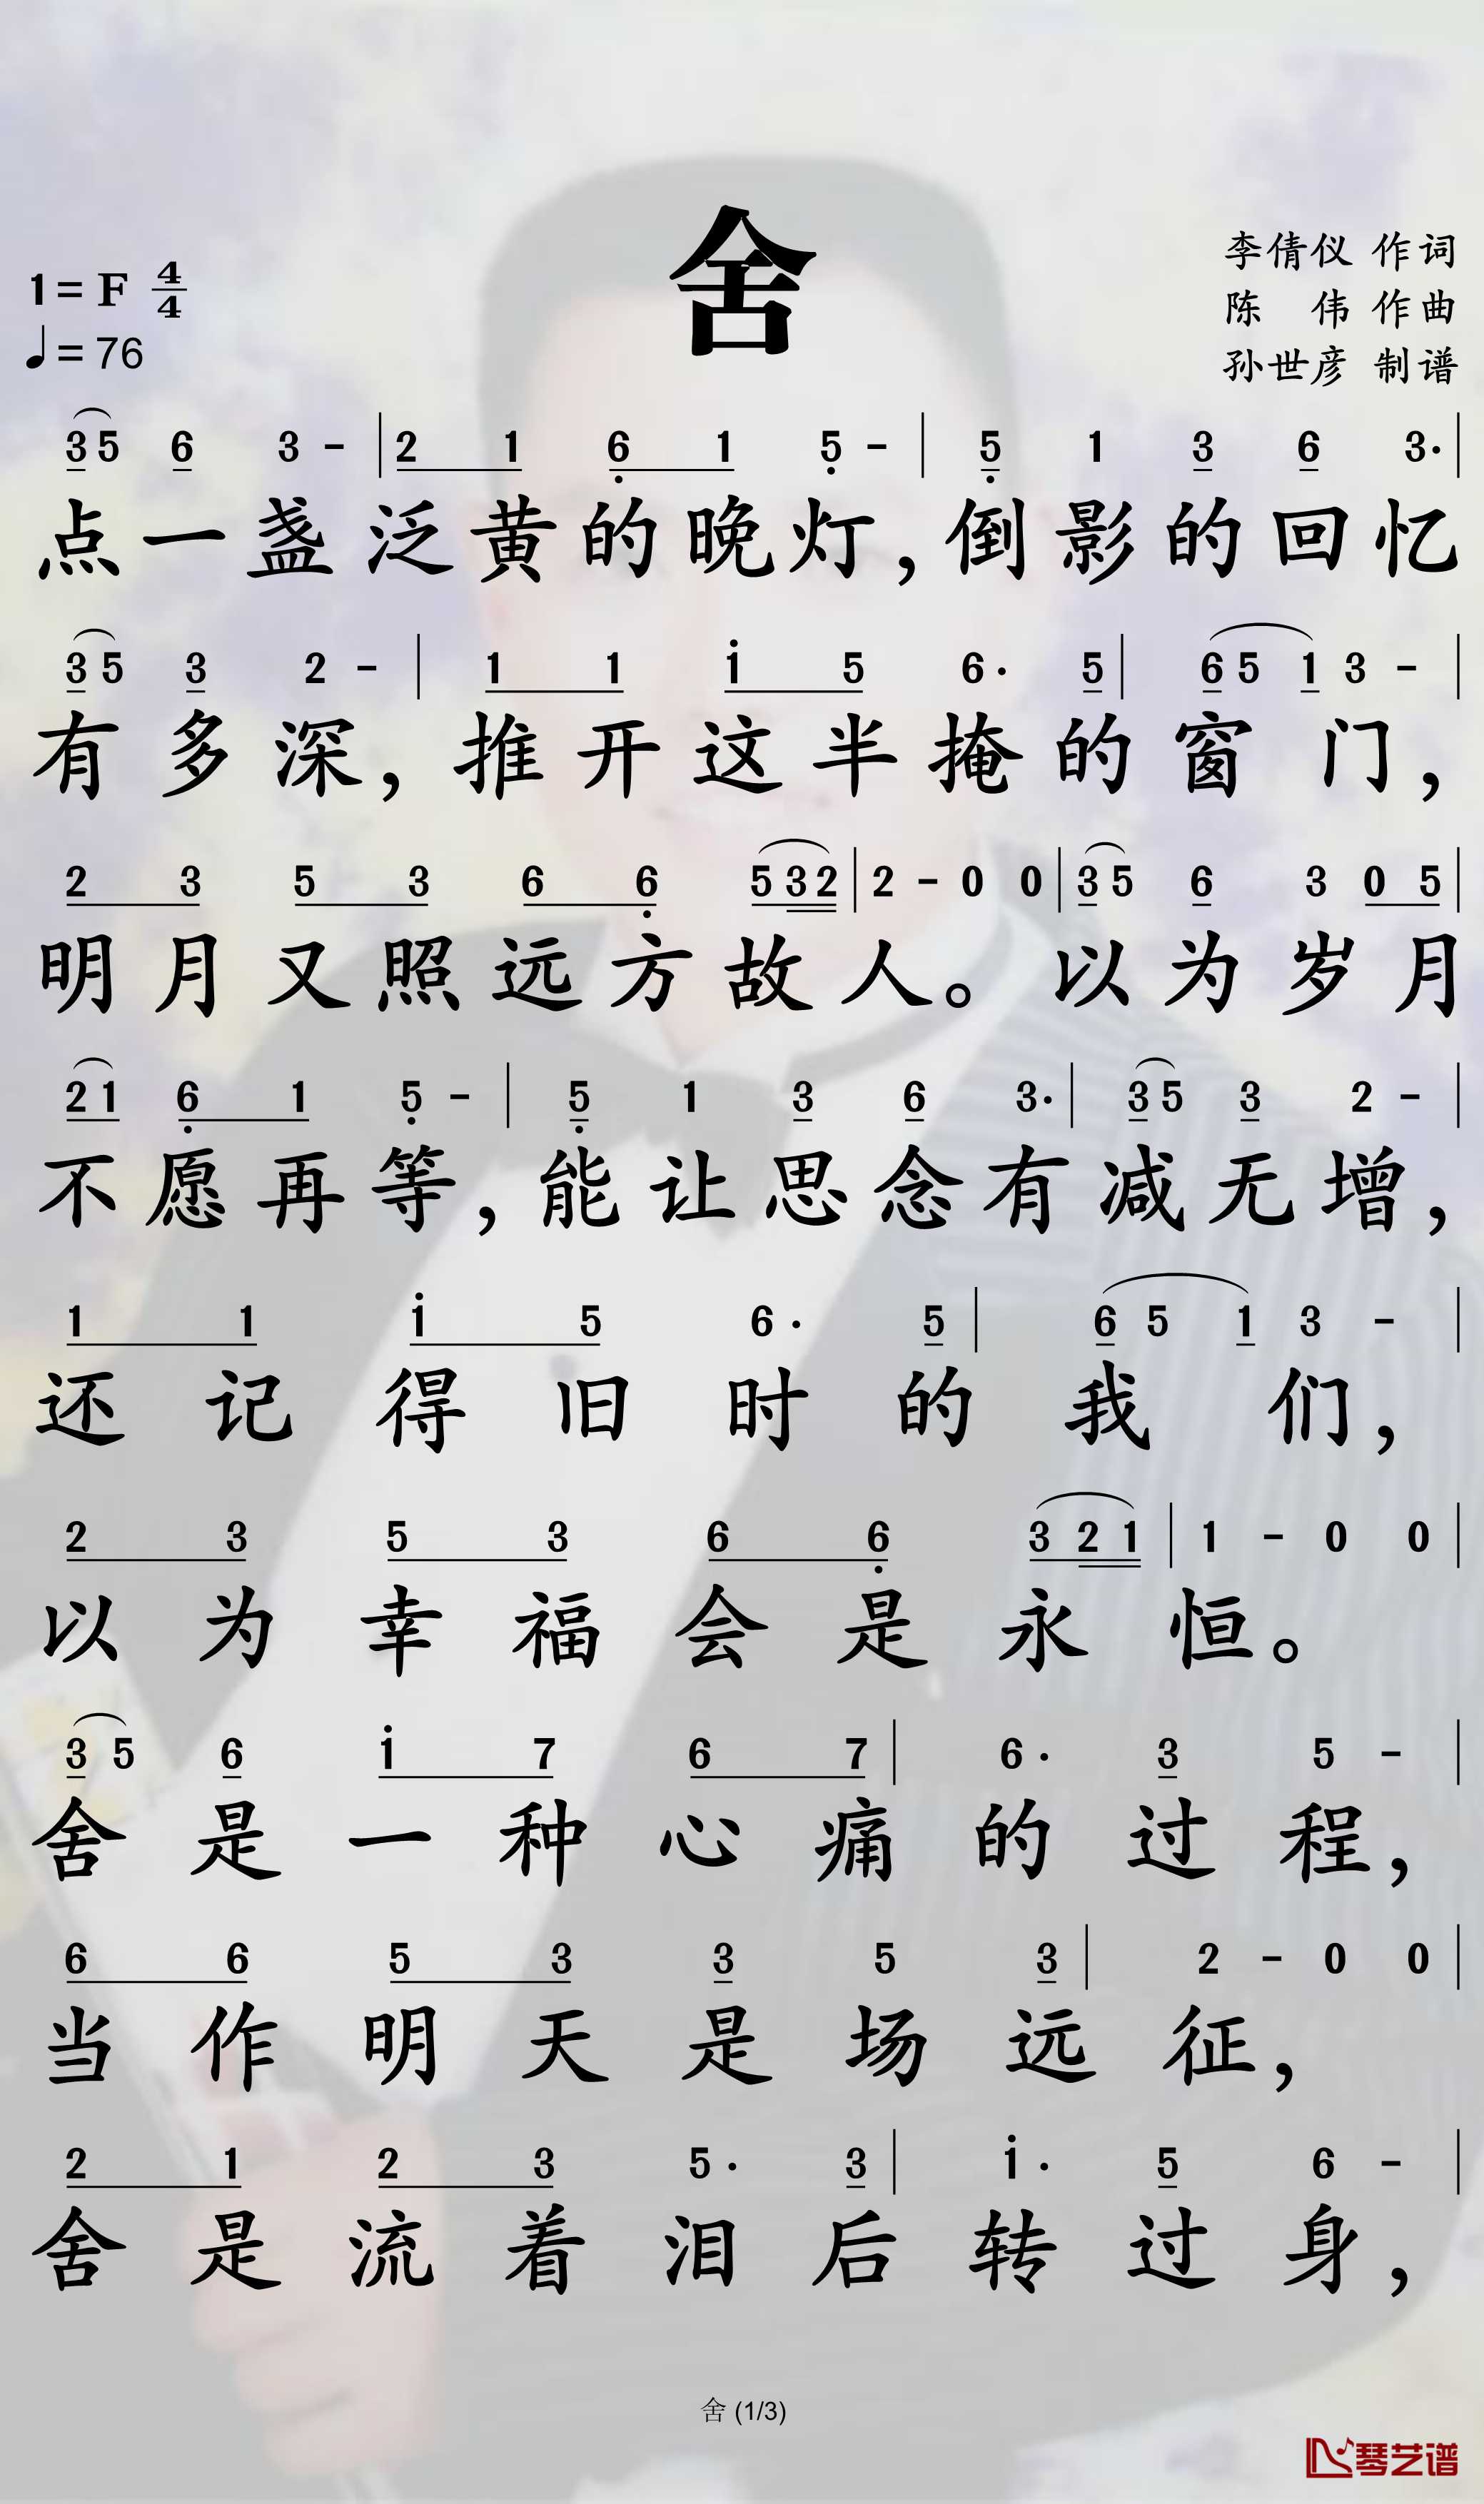 舍
1=F 4/4
♩=76
李倩仪 作词
陈 伟 作曲
孙世彦 制谱
3 5 6 3 - | 2 1 6̣ 1 5̣ - | 5̣ 1 3 6 3· |
点一盏泛黄的晚灯，倒影的回忆
3 5 3 2 - | 1 1 1̇ 5 6· 5 | 6 5 1 3 - |
有多深，推开这半掩的窗门，
2 3 5 3 6 6̣ 5 3 2 | 2 - 0 0 | 3 5 6 3 0 5 |
明月又照远方故人。以为岁月
2 1 6̣ 1 5̣ - | 5̣ 1 3 6 3· | 3 5 3 2 - |
不愿再等，能让思念有减无增，
1 1 1̇ 5 6· 5 | 6 5 1 3 - |
还记得旧时的我们，
2 3 5 3 6 6̣ 3 2 1 | 1 - 0 0 |
以为幸福会是永恒。
3 5 6 1̇ 7 6 7 | 6· 3 5 - |
舍是一种心痛的过程，
6 6 5 3 3 5 3 | 2 - 0 0 |
当作明天是场远征，
2 1 2 3 5· 3 | 1̇· 5 6 - |
舍是流着泪后转过身，
舍 (1/3)
琴艺谱